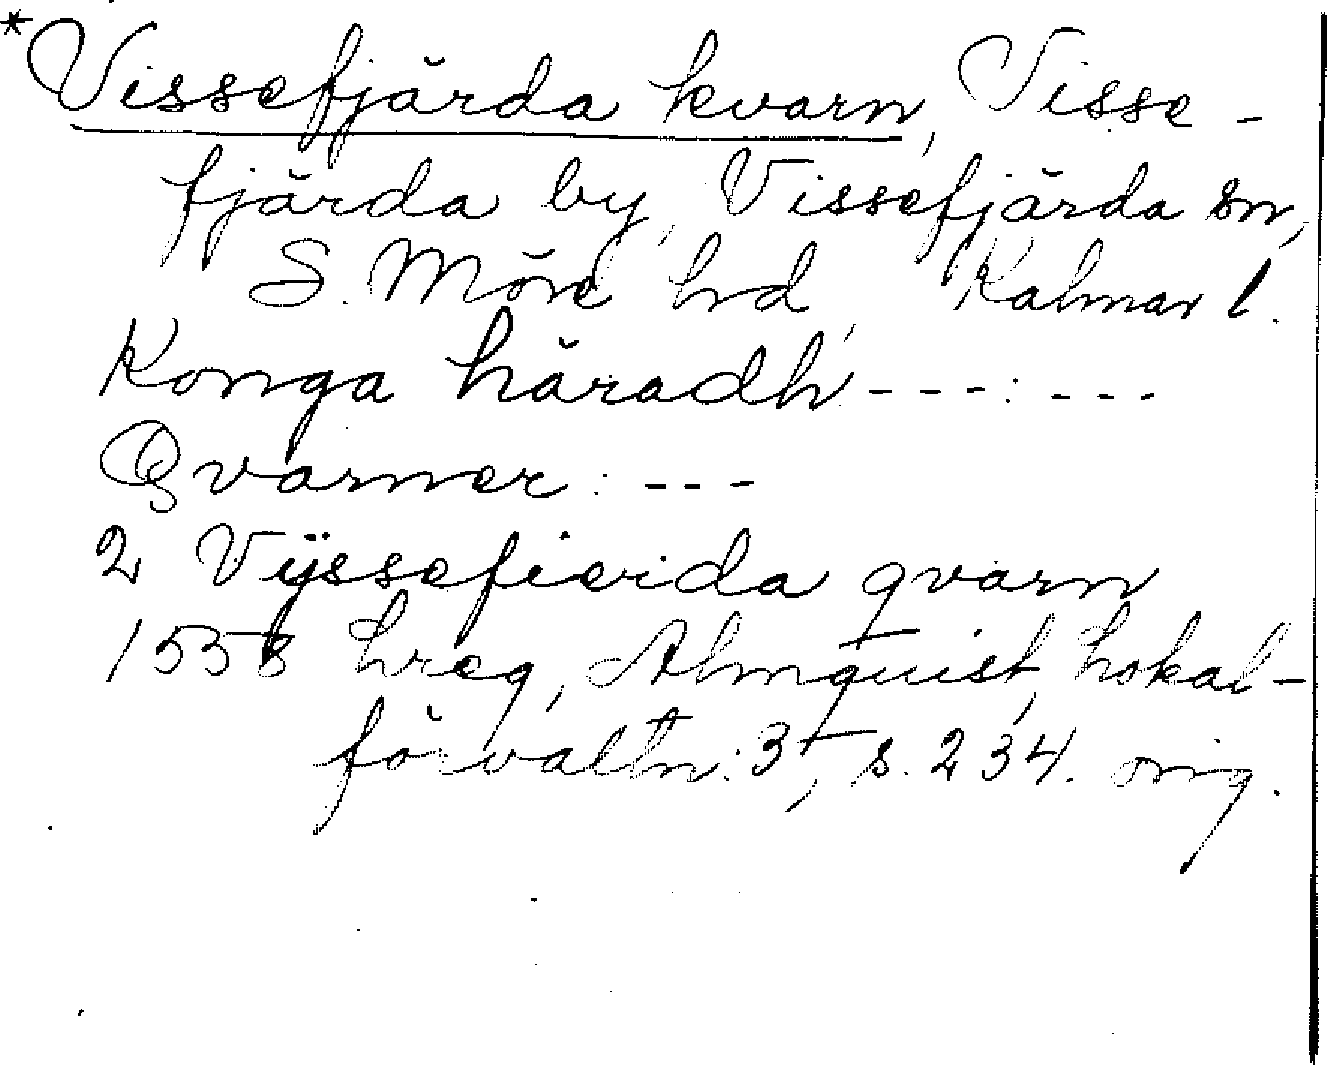 *Vissefjärda kvarn, Visse-
fjärda by, Vissefjärda sn,
S. Möre hd, Kalmar l.
Konga häradh ---:---
Qvarner: ---
2 Vÿssefierda qvarn
1553 hreg, Almquist, Lokal-
förvaltn: 3, s. 234. orig.